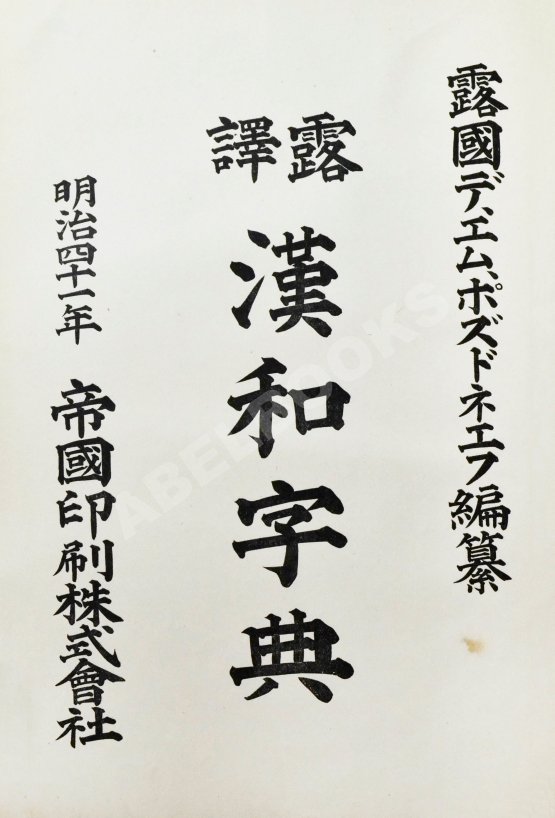 露國デ、エム、ポズドネエフ編纂
露譯
漢和字典
明治四十一年
帝國印刷株式會社
ABELBOOKS